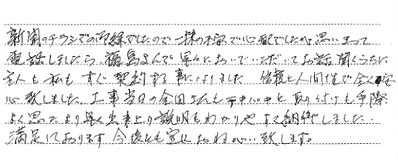 新聞のチラシでのご縁でしたので一抹の不安で心配でしたが思いきって
電話しましたら、福島さんで早々においでいただいてお話聞くうちに
主人も私もすぐ契約する事になりました 信頼と人間性で全く安
心致しました。工事当日の金田さんもテキパキと取り付けも手際
よく思ったより早く出来上り説明もわかりやすく納得しました。
満足しております 今後とも宜しくおねがい致します。